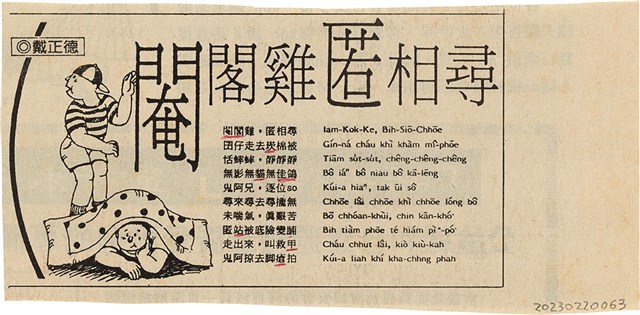 ◎戴正德
閹閣雞匿相尋
閹閣雞，匿相尋 Iam-Kok-Ke, Bih-Siō-Chhōe
囝仔走去崁棉被 Gín-ná cháu khì khàm mî-phōe
恬𡳞𡳞，靜靜靜 Tiām
無影無貓無佳鴿 Bô iáⁿ bô niau bô kā-lēng
鬼阿兄，逐位so Kúi-a hiaⁿ, tak ūi sô
尋來尋去尋攏無 Chhōe lâi chhōe khì chhōe lóng bô
未喘氣，眞艱苦 Bō chhóan-khùi, chin kān-khó͘
匿站被底險變脯 Bih tiàm phōe té hiám pìⁿ-pó͘
走出來，叫救甲 Cháu chhut lâi, kiò kiù-kah
鬼阿掠去脚㾪拍 Kúi-a liah khí kha-chhng phah
20230220063